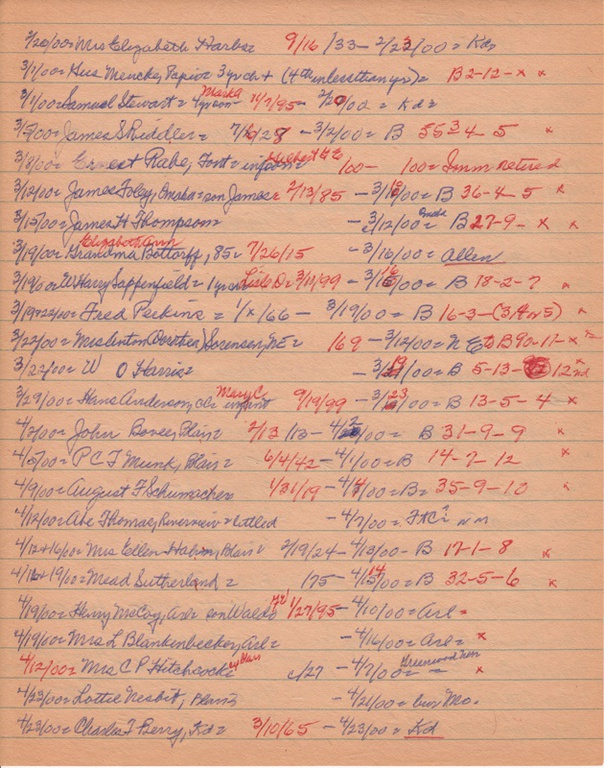 2/20/00= Mrs Elizabeth Harbe= 9/16/33 - 2/23/00= Kd=
3/1/00= Gus Mencke, Papio= 3 yr ch + (4th unless than yr)= B 2-12-x x
3/1/00= Samuel Stewart= 4 yr son= Mark A 11/7/95- 2/20/00= Kd=
3/5/00= James S Riddler= 7/6/28 - 3/2/00= B 55 3-4-5 x
3/8/00= Ernest Rabe, Font= infant= Hilbert G E 100- 100= Imm retired
3/12/00= James Foley, Omaha= son James= 2/13/85 - 3/10/00= B 36-4-5 x
3/15/00= James H Thompson - 3/12/00= B 27-9-x x
3/19/00= Grandma Elizabeth Ann Bottorff, 85= 7/26/15 - 3/16/00= Allen
3/19/00= W Harry Sappenfield= 1 yr Lisle D= 3/11/99 - 3/16/00= B 18-2-7 x
3/19+22/00= Fred Perkins= 1/x/66 - 3/19/00= B 16-3-(3, 4 or 5) x
3/22/00= Mrs (Dorthea) Sorensen, NE= 169 - 3/12/00= N E to B 90-11-x
3/22/00= W O Harris= - 3/19/00= B 5-13- 12 x
3/29/00= Hans Anderson, infant Mary C 9/19/99 - 3/23/00= B 13-5-4 x
4/2/00= John Bovee, Blair= 2/13/13- 4/2/00= B 31-9-9 x
4/5/00= P C T Munk, Blair= 6/4/42 - 4/1/00= B 14-7-12 x
4/9/00= August F Schumacher= 1/31/19 - 4/4/00= B= 35-9-10 x
4/12/00= Abe Thomas, Riverview= - 4/7/00= FtC?
4/12+16/00= Mrs Ellen Halson, Blair= 2/19/24 - 4/13/00- B 17-1-8 x
4/16+19/00= Mead Sutherland= 175 - 4/14/00= B 32-5-6 x
4/19/00= Henry McCoy, Arl= son Waldo 1/27/95 - 4/10/00= Arl= x
4/19/00= Mrs L Blankenbecker, Arl= - 4/16/00= Arl= x
4/12/00= Mrs C P Hitchcock= ex Blair c/27 - 4/7/00= Greenwood x
4/23/00= Lottie Nesbit, Blair= - 4/21/00= bur Mo.
4/23/00= Charles T Berry, Kd= 3/10/65 - 4/23/00= Kd